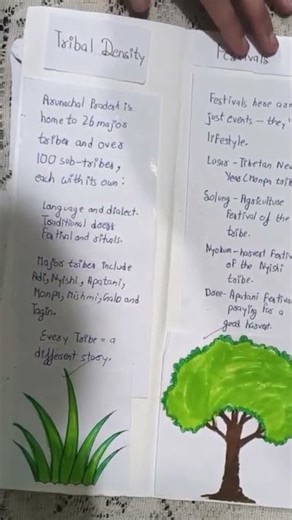 Tribal Density
Arunachal Pradesh is
home to 26 major
tribes and over
100 sub-tribes,
each with its own:
Language and dialect.
Traditional dress
Festival and rituals.
Major tribes include
Adi, Nyishi, Apatani,
Monpa, Mishmi, Galo and
Tagin.
Every Tribe = a
different story.
Festivals
Festivals here are
just events – they,
lifestyle.
Losar – Tibetan New
Year (Monpa tribe
Solung – Agriculture
Festival of the
tribe.
Nyokum – harvest Festiv
of the Nyishi
tribe.
Dree – Apatani Festival
praying for a
good harvest.